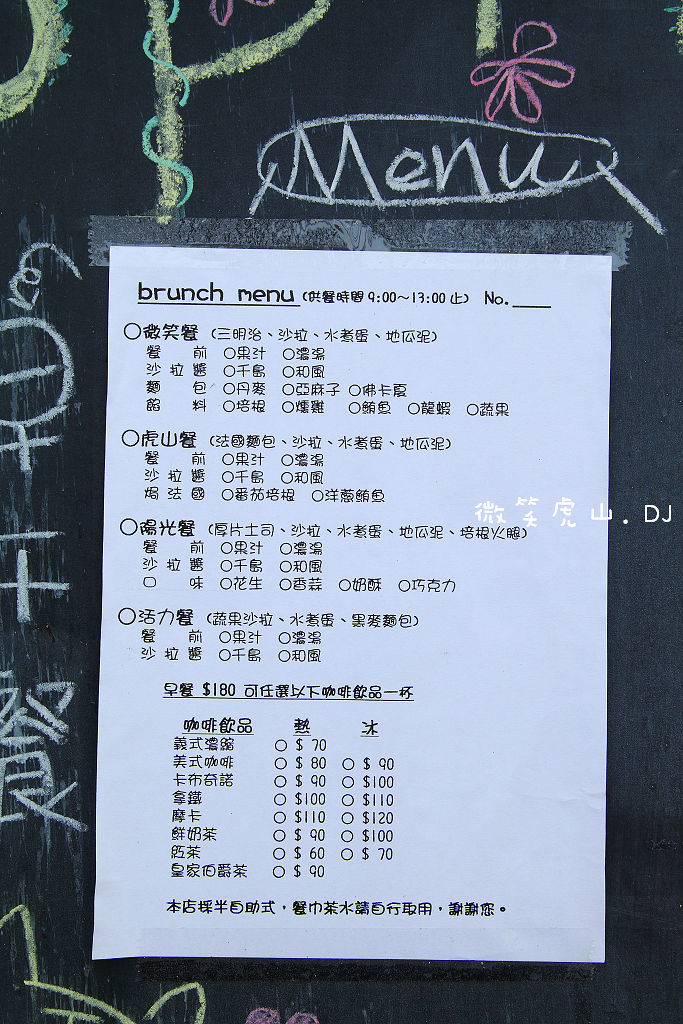 Menu
brunch menu (供餐時間 9:00～13:00 止) No.____
○微笑餐 (三明治、沙拉、水煮蛋、地瓜泥)
餐 前 ○果汁 ○濃湯
沙拉醬 ○千島 ○和風
麵 包 ○丹麥 ○亞麻子 ○佛卡夏
餡 料 ○培根 ○燻雞 ○鮪魚 ○龍蝦 ○蔬果
○虎山餐 (法國麵包、沙拉、水煮蛋、地瓜泥)
餐 前 ○果汁 ○濃湯
沙拉醬 ○千島 ○和風
焗法國 ○番茄培根 ○洋蔥鮪魚
微笑虎山.DJ
○陽光餐 (厚片土司、沙拉、水煮蛋、地瓜泥、培根火腿)
餐 前 ○果汁 ○濃湯
沙拉醬 ○千島 ○和風
口 味 ○花生 ○香蒜 ○奶酥 ○巧克力
○活力餐 (蔬果沙拉、水煮蛋、黑麥麵包)
餐 前 ○果汁 ○濃湯
沙拉醬 ○千島 ○和風
早餐 $180 可任選以下咖啡飲品一杯
咖啡飲品 熱 冰
義式濃縮 ○ $ 70
美式咖啡 ○ $ 80 ○ $ 90
卡布奇諾 ○ $ 90 ○ $100
拿鐵 ○ $100 ○ $110
摩卡 ○ $110 ○ $120
鮮奶茶 ○ $ 90 ○ $100
紅茶 ○ $ 60 ○ $ 70
皇家伯爵茶 ○ $ 90
本店採半自助式，餐巾茶水請自行取用，謝謝您。